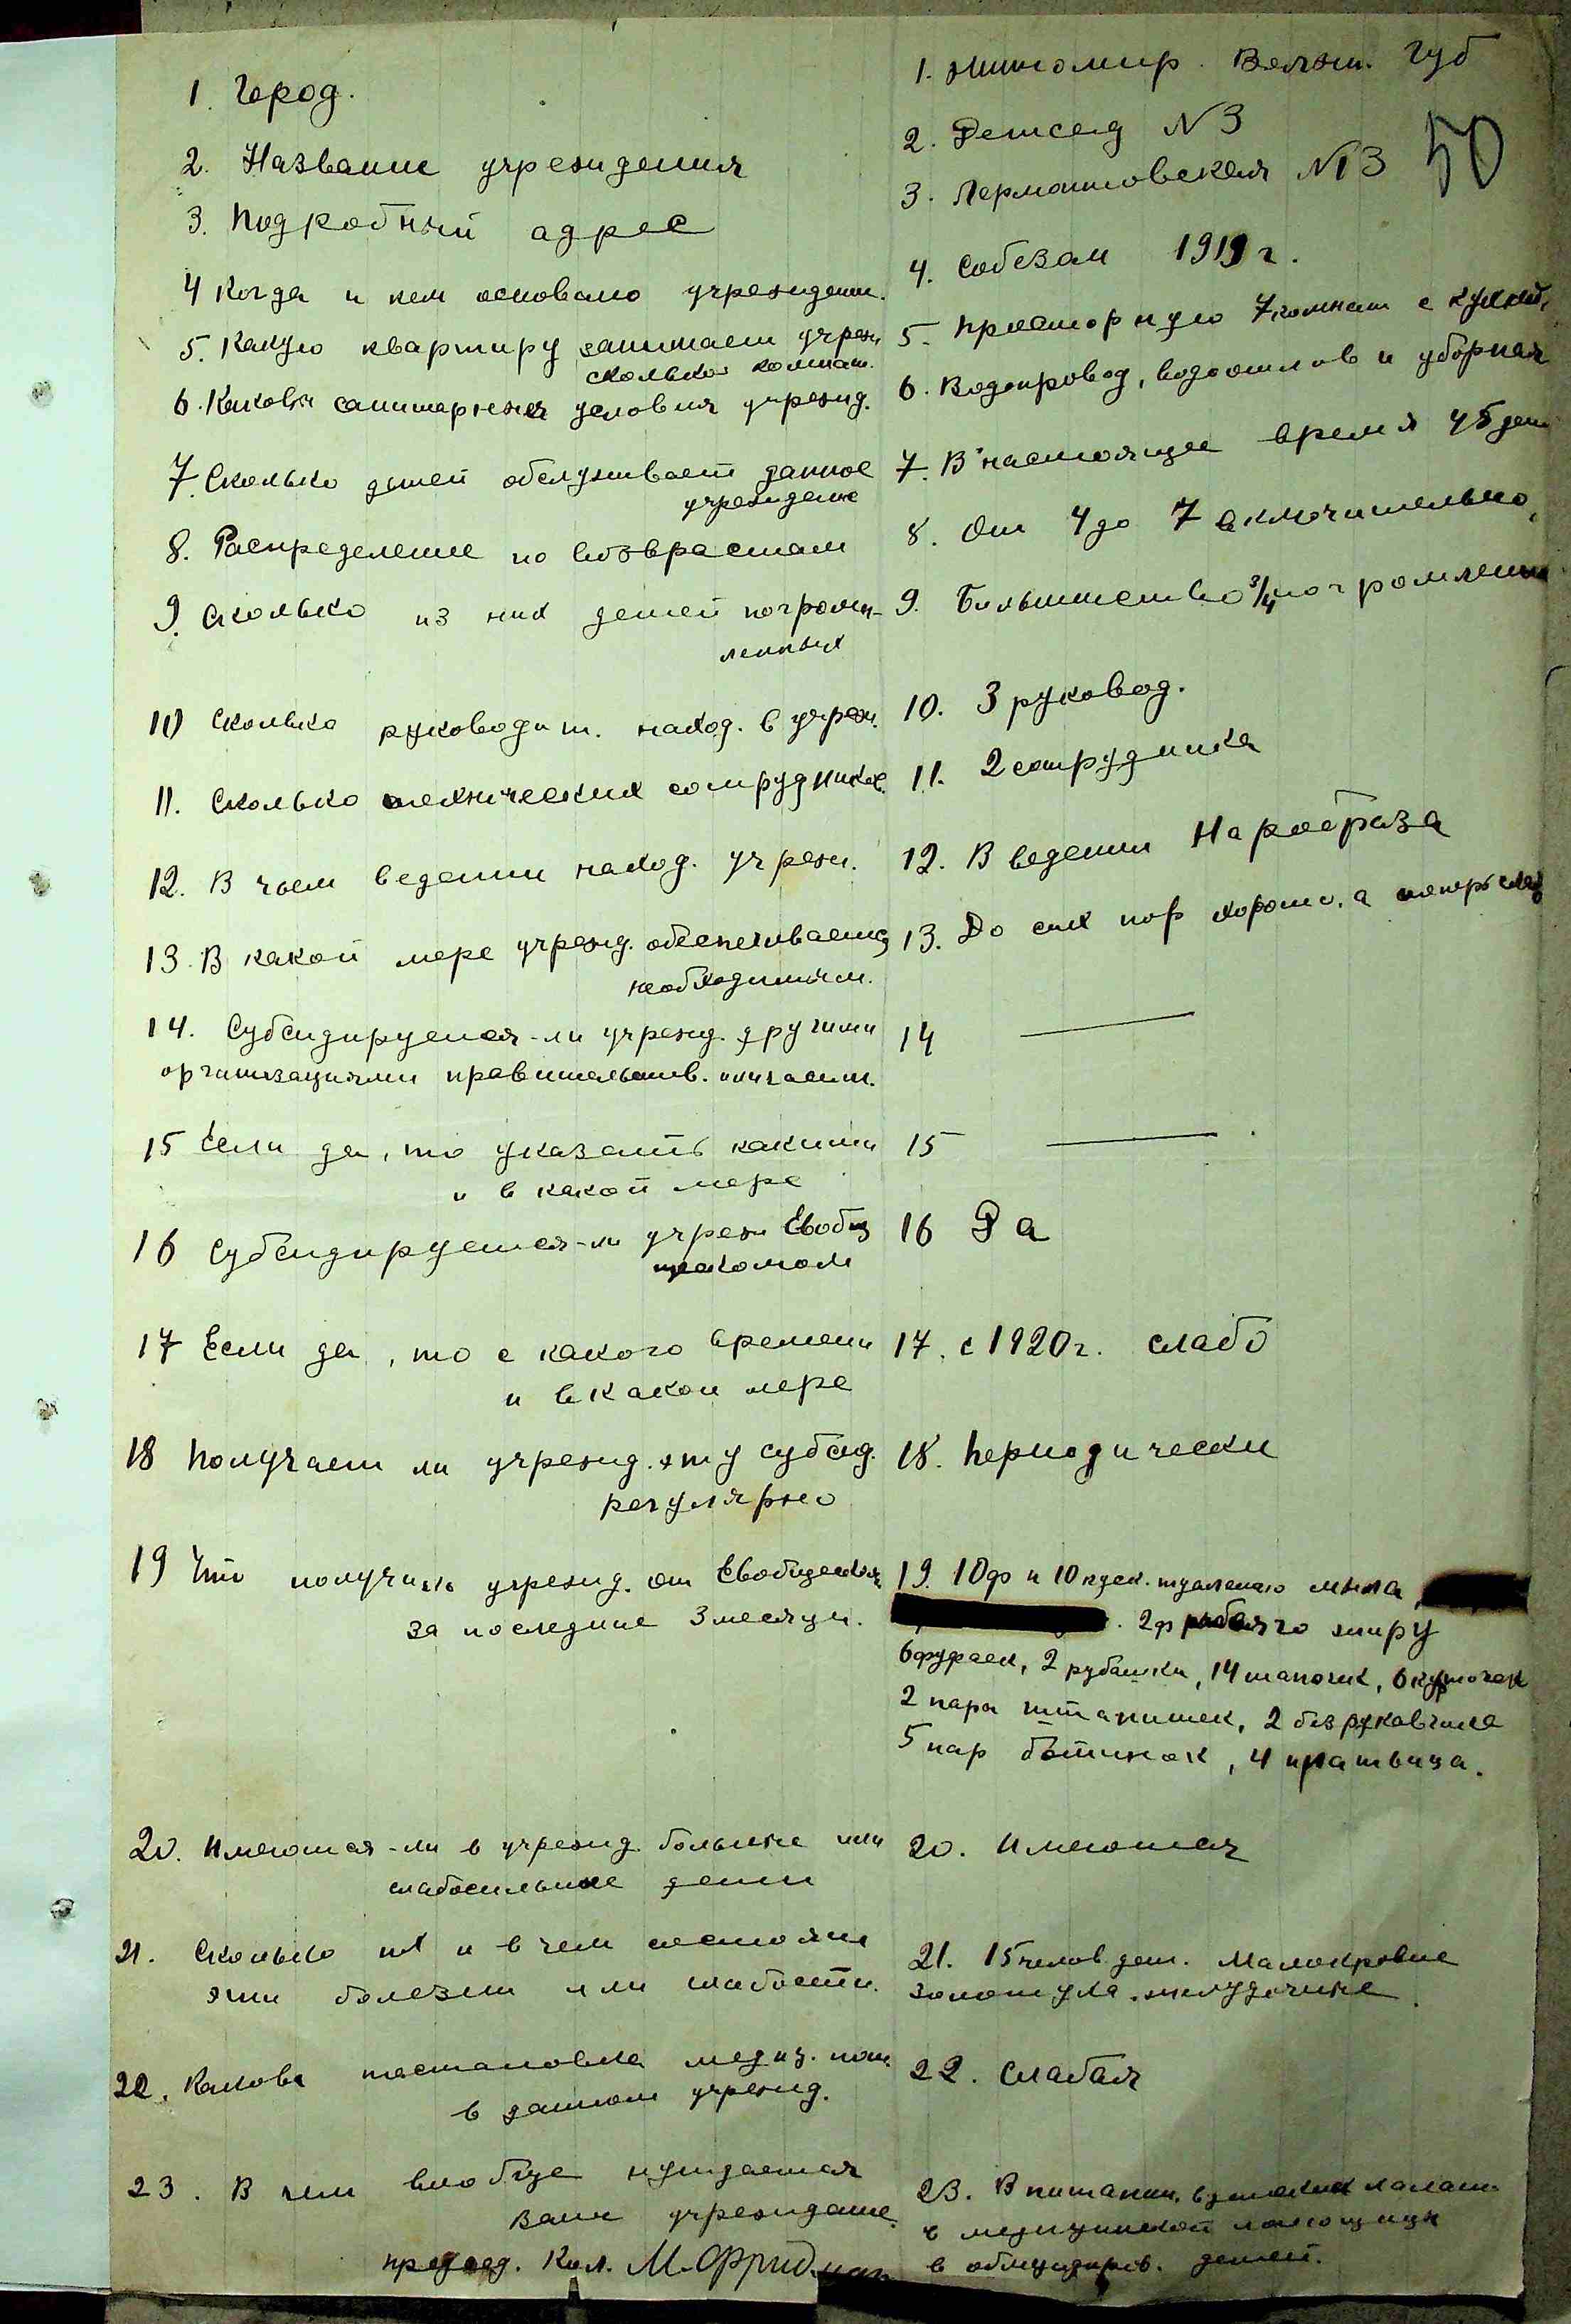 1. Город.
1. Житомир. Волын. Губ
2. Название учреждения
2. Детсад N 3
3. Подробный адрес
3. Лермонтовская N 13
50
4 Когда и кем основано учрежден.
4. Собезом 1919 г.
5. Какую квартиру занимает учреж.
сколько комнат.
5. Просторную 7 комнат с кухней,
6. Каковы санитарные условия учрежд.
6. Водопровод, водоотлив и уборная
7. Сколько детей обслуживает данное
учреждение
7. В настоящее время 45 дет
8. Распределение по возврастам
8. От 4 до 7 включительно,
9. Сколько из них детей погром-
ленных
9. Большинство 3/4 погромлены
10 Сколько руководит. наход. в учреж.
10. 3 руковод.
11. Сколько технических сотрудников.
11. 2 сотрудника
12. В чьем ведении наход. учреж.
12. В ведении Наробраза
13. В какой мере учрежд. обеспечивается
необходимым.
13. До сих пор хорошо, а теперь слаб
14. Субсидируется-ли учрежд. другими
организациями правительств. или частн.
14 —
15 Если да, то указать какими
и в какой мере
15 —
16 Субсидируется-ли учреж Евобщ
16 Да
17 Если да, то с какого времени
и в какой мере
17. с 1920 г. слабо
18 Получает ли учрежд. эту субсид.
регулярно
18. Периодически
19 Что получило учрежд. от Евобщесткома
за последние 3 месяца.
19. 10 ф и 10 куск. туалетного мыла,
. 2 ф жиру
6 фуфаек, 2 рубашки, 14 шапочек, 6 курточек
2 пары штанишек, 2 безрукавчика
5 пар ботинок, 4 платьица.
20. Имеются-ли в учрежд. больные или
слабосильные дети
20. Имеются
21. Сколько их и в чем состоят
эти болезни или слабости.
21. 15 челов. дет. Малокровие
золотуха. желудочные
22. Какова постановка медиц. пом.
в данном учрежд.
22. Слабая
23. В чем вообще нуждается
Ваше учреждение.
23. В питании,
в медицинской помощи и
в обмундиров. детей.
председ. Кол. М. Фридман